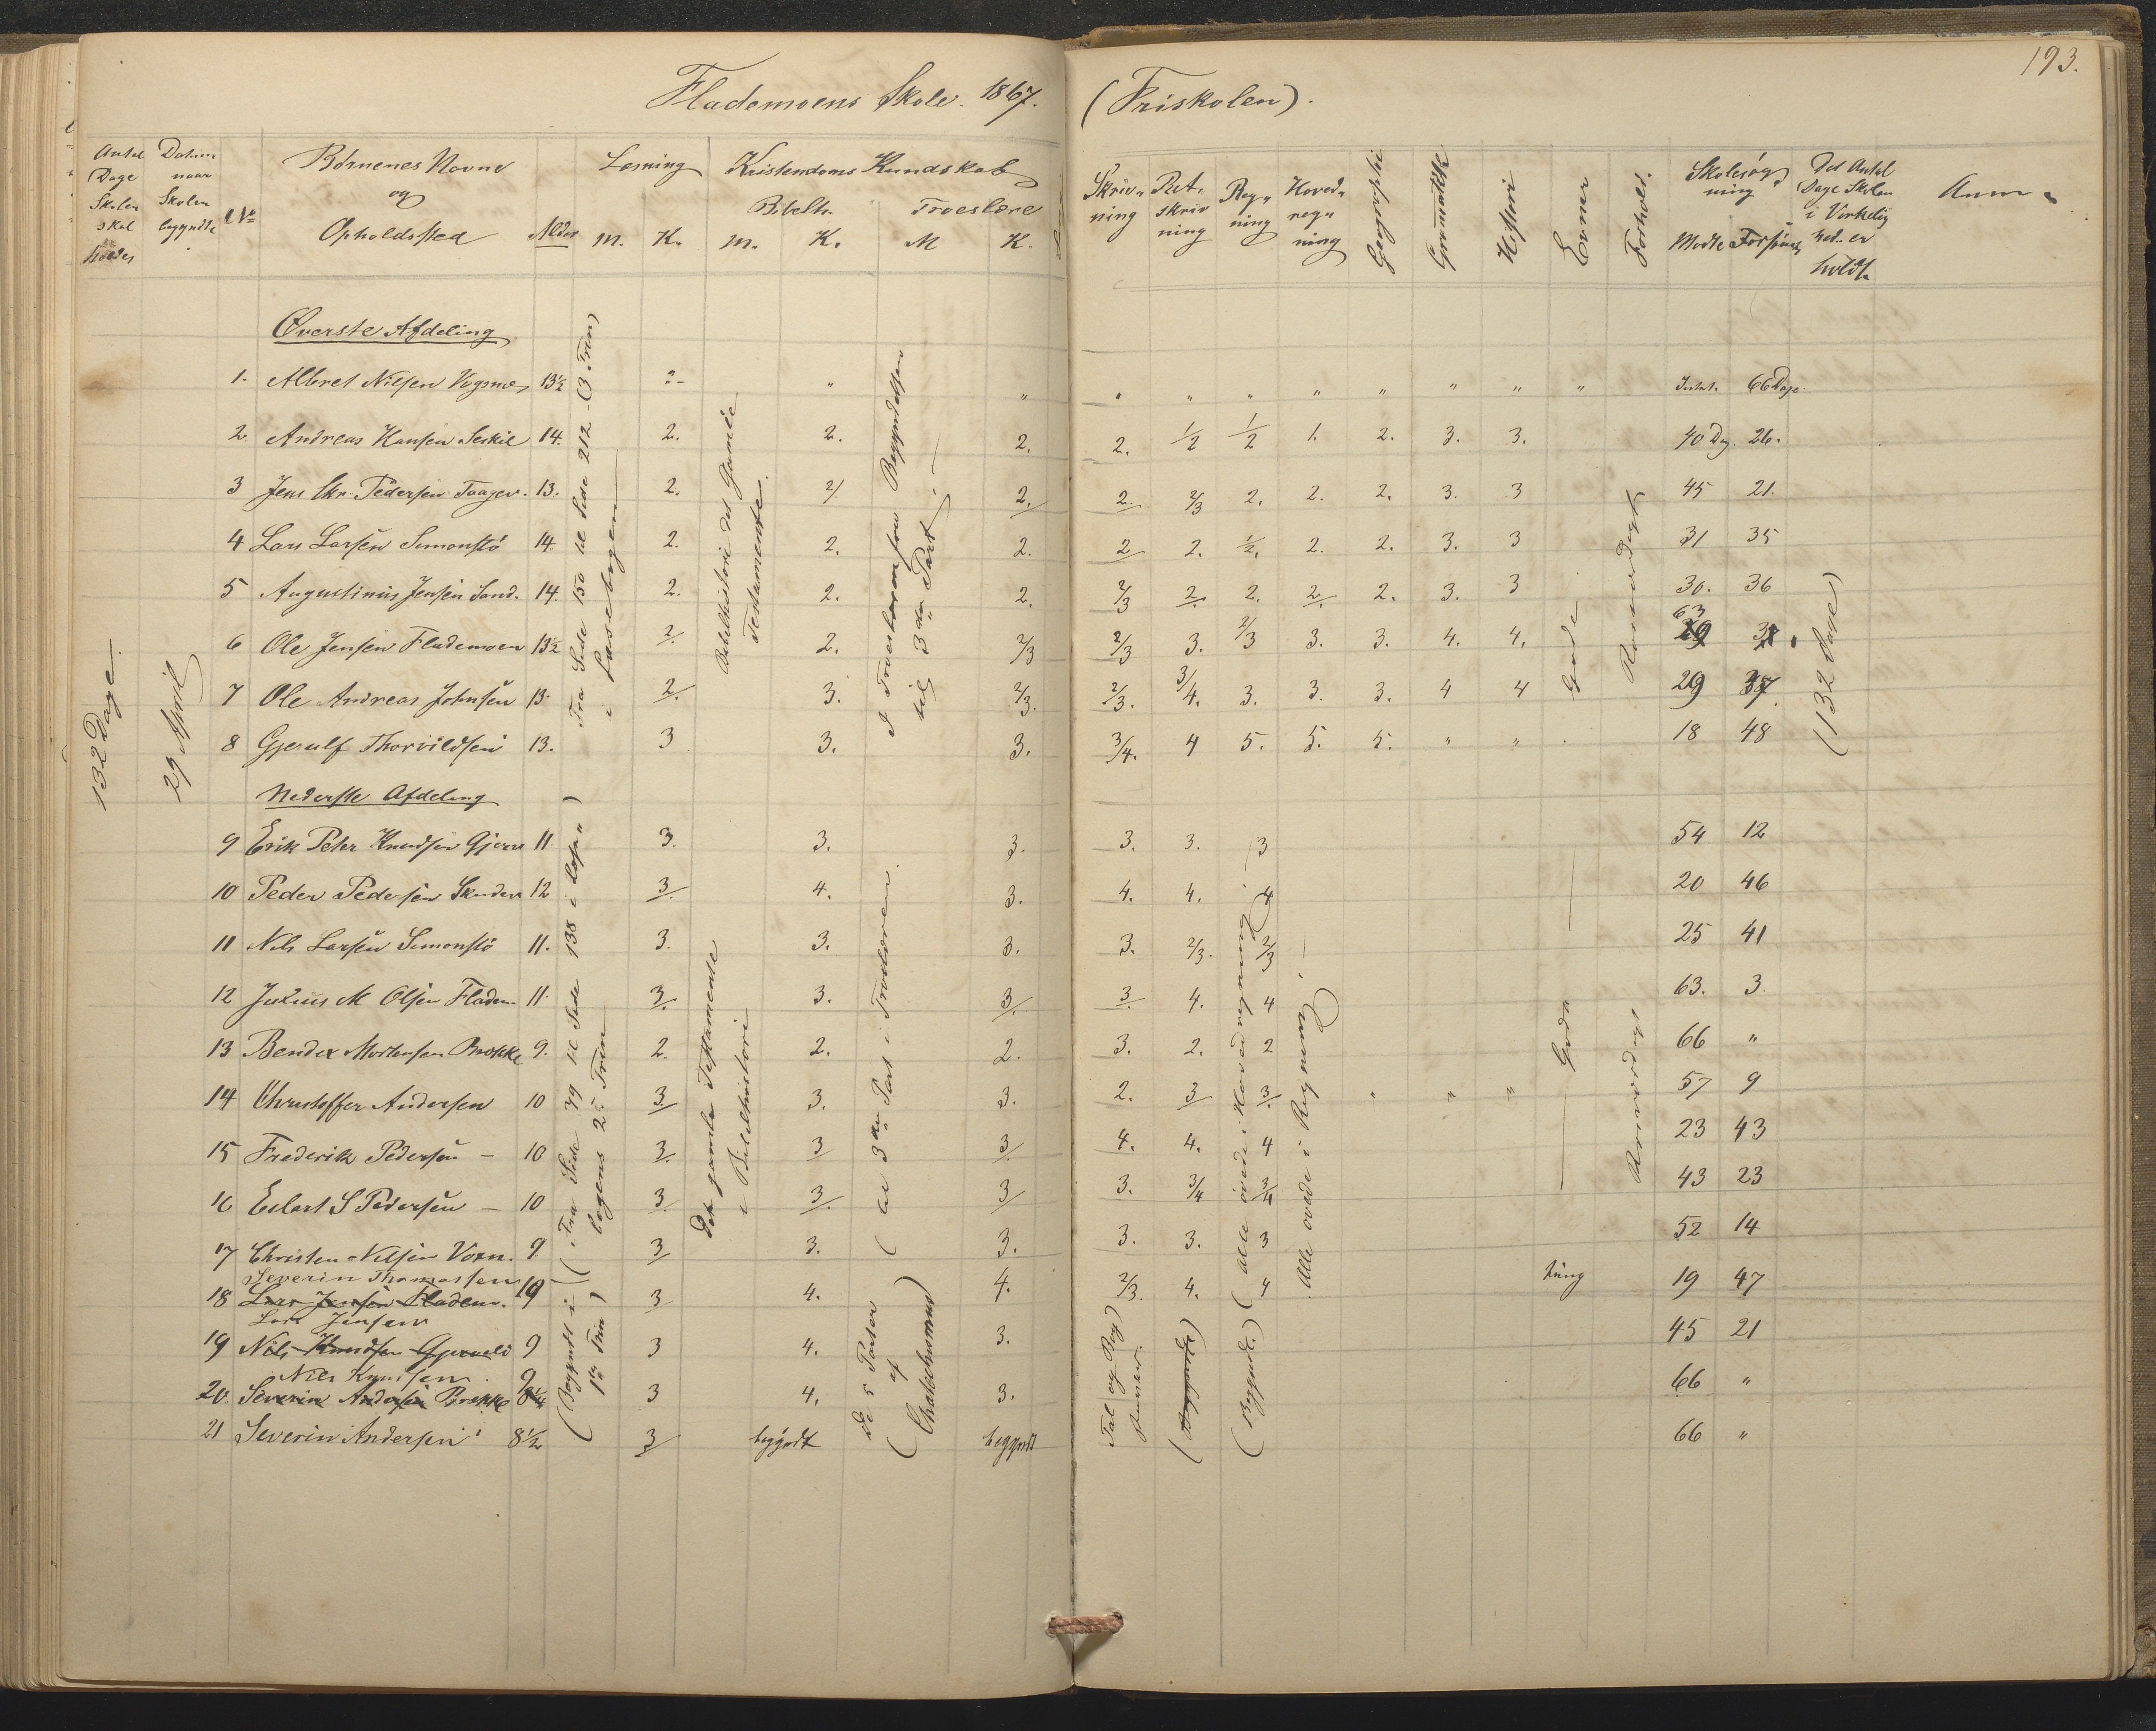 193.
Flademoens Skole. 1867. (Friskolen).
Antal Dage Skolen skal holdes
Datum naar Skolen begyndte
No
Børnenes Navne og Opholdssted
Alder
Læsning M. K.
Kristendoms Kundskab
Bibelh. M. K.
Troeslære M K.
Skriv„ning
Ret„skrivning
Reg„ning
Hoved„reg„ning
Geographi
Gramatikk
Histori
Evner
Forhold.
Skolesøgning Mødte Forsømt
Det Antal Dage Skolen i Virkelighed er holdt
Anm
132 Dage.
29 April
Øverste Afdeling
Fra Side 150 til Side 212 (3 Trin) i Læsebogen
Bibelhistorie det Gamle Testamente.
I Troeslæren fra Begyndelsen til 3die Part.
Gode
(132 Dage)
1. Albret Nilsen 13½ 2 „ „ „ „ „ „ „ „ „ „ 66 Dage
2. Andreas Hansen 14. 2. 2. 2. 2. 1/2 1/2 1. 2. 3. 3. 40 Dg. 26.
3 Jens Chr. Pedersen 13. 2. 2/ 2. 2. 2/3 2. 2. 2. 3. 3 45 21.
4 Lars Larsen Simonstø 14. 2. 2. 2. 2 2. 1/2. 2. 2. 3. 3 31 35
5 Augustinius Jensen Sand. 14. 2. 2. 2. 2/3 2. 2. 2. 2. 3. 3 30. 36
6 Ole Jensen Flademoen 13½ 2. 2. 2/3 2/3 3. 2/3 3. 3. 4. 4. 63
7 Ole Andreas Johnsen 13 2. 3. 2/3. 2/3. 3/4. 3. 3. 3. 4 4 29 37
8 Gjerulf Thorvildsen 13. 3 3. 3. 3/4. 4 5. 5. 5. „ „ 18 48
Nederste Afdeling
(Fra Side 79 til Side 138 i Læse„bogens 2det Trin)
Det gamle Testamente i Bibelhistori
(til 3die Part i Troslæren.
(Alle øvede i Hovedregning)
Alle øvede i Regning
Gode
9 Erik Peter Knudsen 11. 3. 3. 3. 3. 3. 3 54 12
10 Peder Pedersen 12 3. 4. 3. 4. 4. 4 20 46
11 Nils Larsen Simonstø 11. 3. 3. 3. 3. 2/3. 2/3 25 41
12 Julius M Olsen Fladem 11. 3. 3. 3. 3. 4. 4 63. 3.
13 Bendex Mortensen Brække 9. 2. 2. 2. 3. 2. 2 66 „
14 Christoffer Andersen 10 3 3. 3. 2. 3 3. „ „ „ 57 9
15 Frederik Pedersen — 10 3. 3 3 4. 4. 4 23 43
16 Eilert S Pedersen — 10 3 3. 3 3. 3/4 3/4 43 23
17 Christen Nilsen 9 3 3. 3. 3. 3. 3 52 14
Severin Thomassen
18 Lars Jensen Fladem. 10 3 4. 4. 2/3. 4. 4 tung 19 47
Lars Jensen
19 Nils Knudsen 9 3 4. 3. 45 21
Nils Knudsen. 9
20. Severin Andersen Brække 8½ 3 4. 3. 66 „
21 Severin Andersen 8½ 3 begyndt begyndt 66 „
(Begyndt i 1ste Trin)
De 5 Parter af (Chatechismus)
Tal og Bog
(Begyndt)
(Begyndt.)